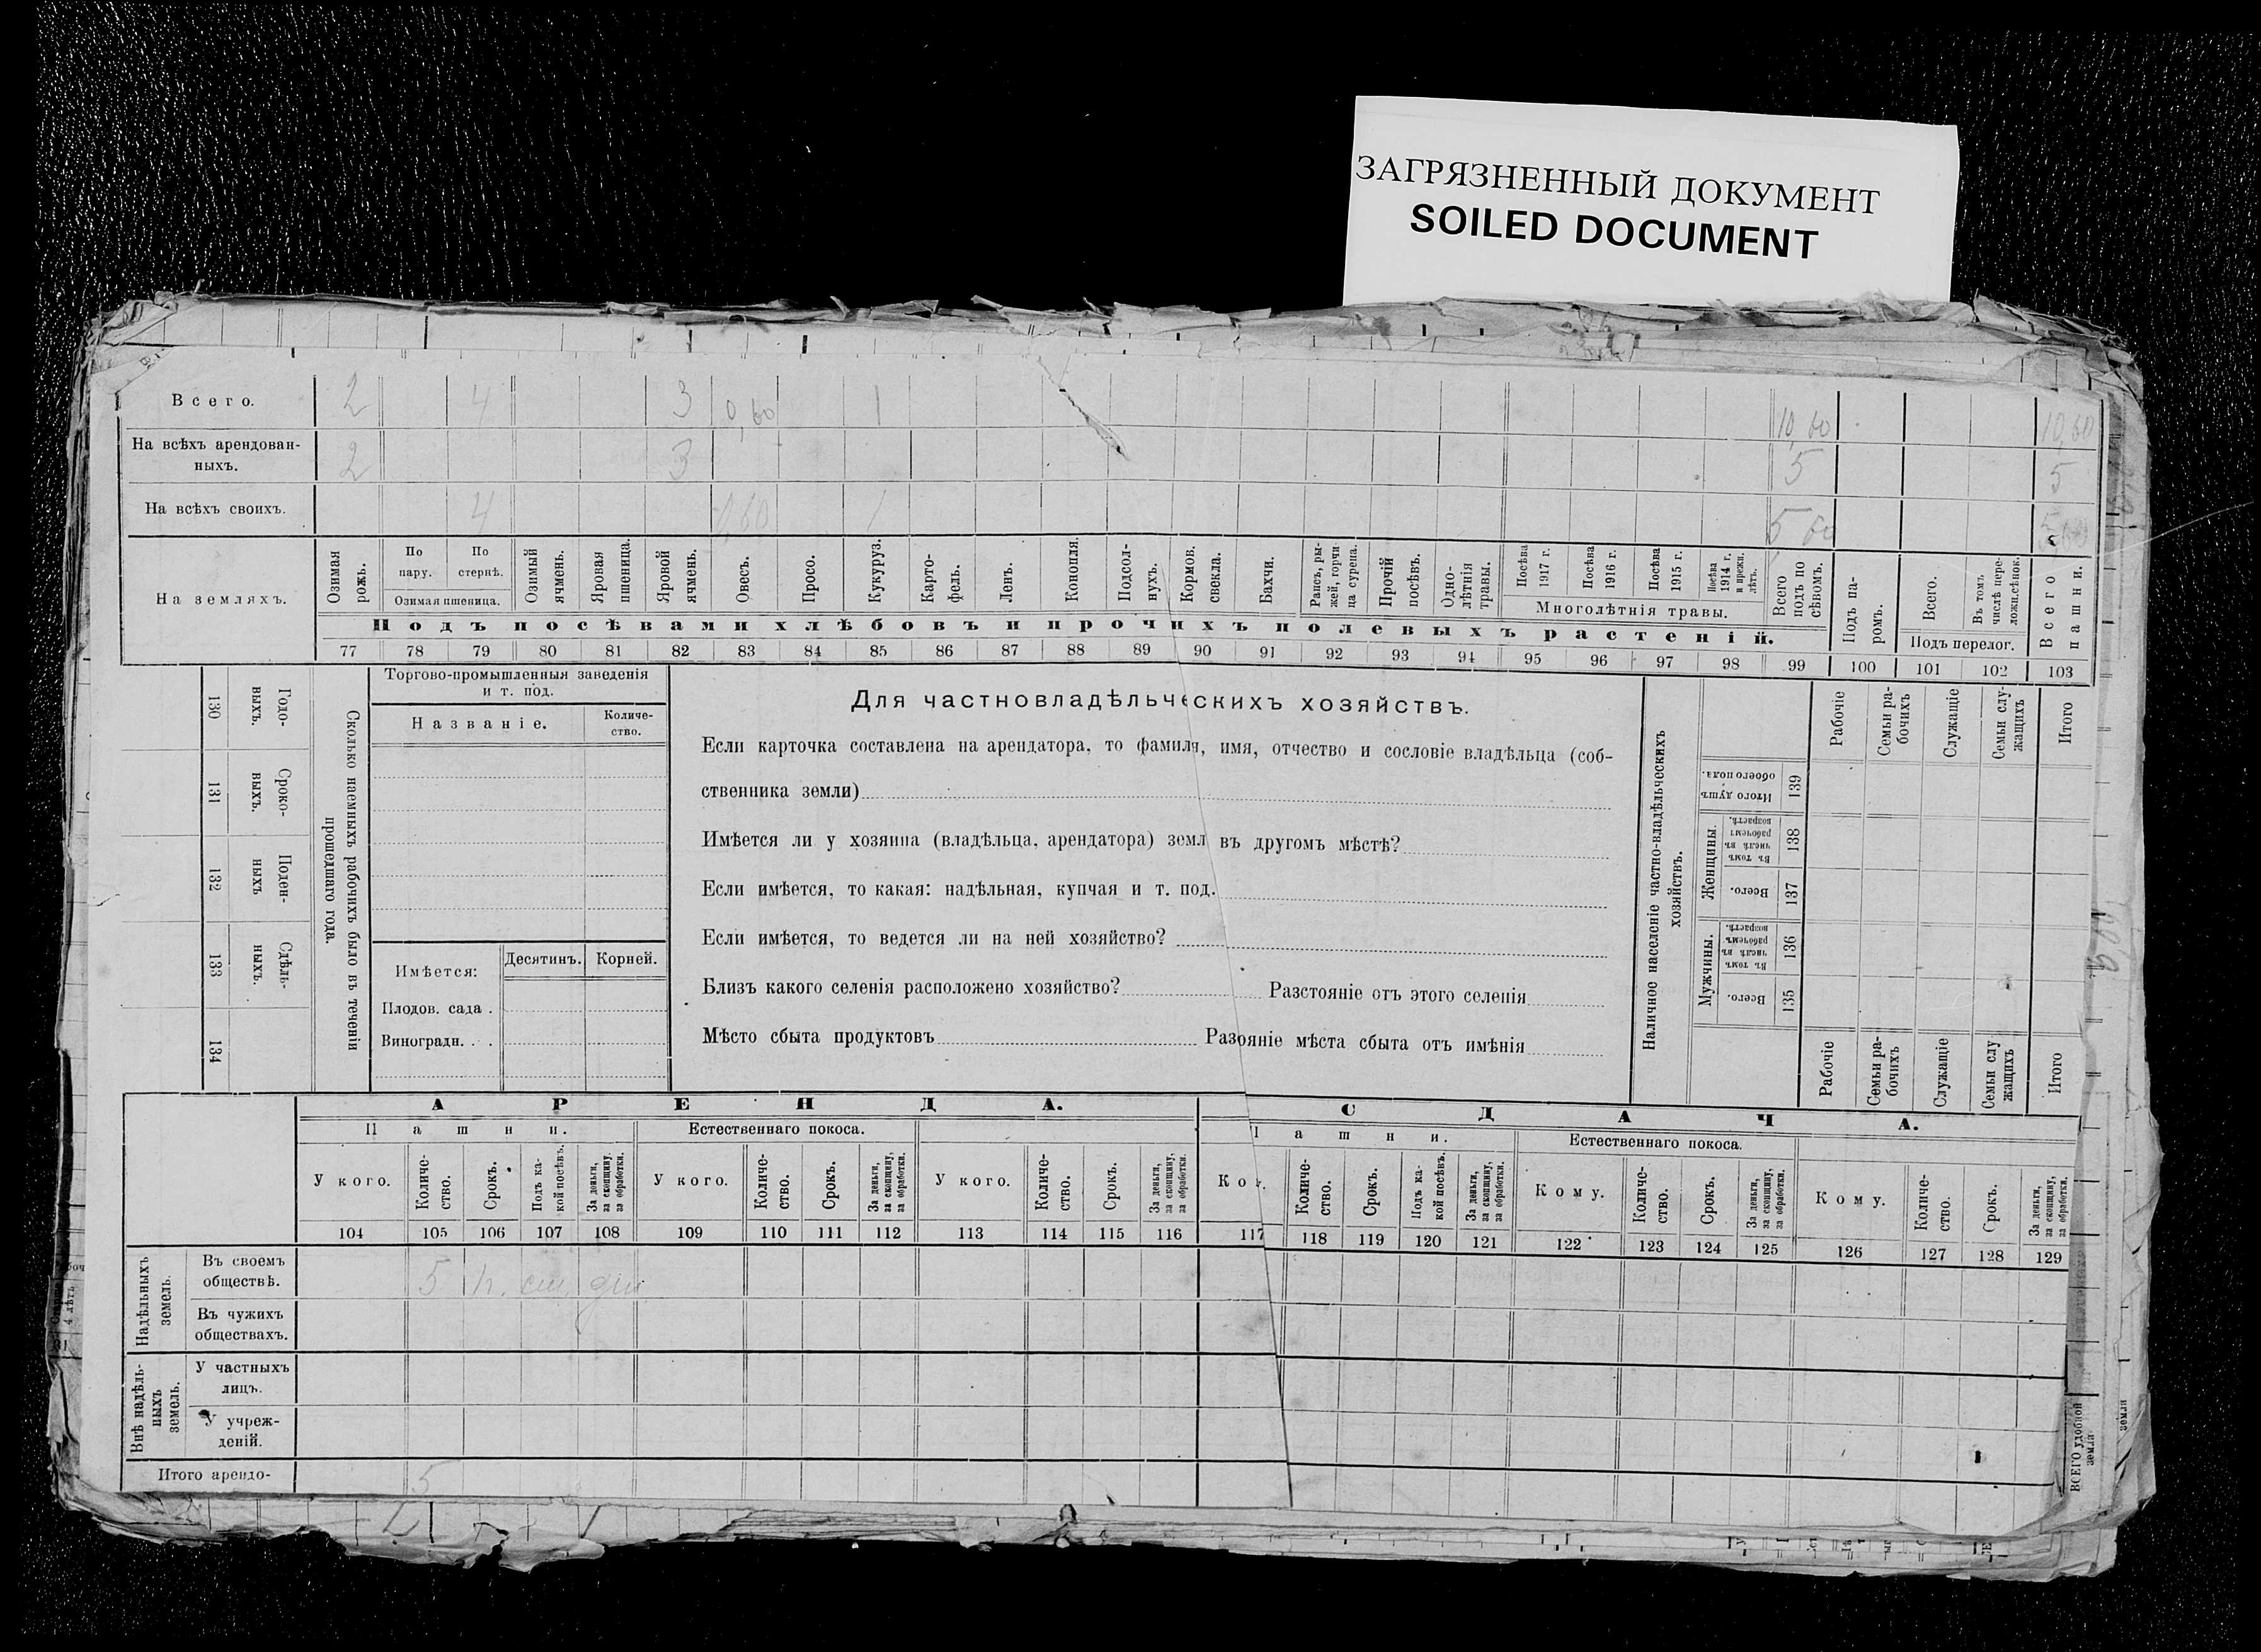 ЗАГРЯЗНЕННЫЙ ДОКУМЕНТ
SOILED DOCUMENT
Всего. 2 4 3 0,60 1 10,60 10,60
На всѣхъ арендован-
ныхъ. 2 3 5 5
На всѣхъ своихъ. 4 0,60 1 5 60
На земляхъ.
Озимая рожь.
По пару.
По стернѣ.
Озимая пшеница.
Озимый ячмень.
Яровая пшеница.
Яровой ячмень.
Овесъ.
Просо.
Кукуруз.
Карто-
фель.
Ленъ.
Конопля.
Подсол-
нухъ.
Кормов. свекла.
Бахчи.
Рапсъ, ры-
жей, горчи
ца сурепа.
Прочій посѣвъ.
Одно-
лѣтнія
травы.
Посѣва 1917 г.
Посѣва 1916 г.
Посѣва 1915 г.
Посѣва 1914 г. и прежн. лѣтъ.
Многолѣтнія травы.
Всего подъ по
сѣвомъ.
Подъ па-
ромъ.
Всего.
Въ томъ числѣ пере-
ложн.сѣнок.
Подъ перелог.
Всего пашни.
Подъ посѣвами хлѣбовъ и прочихъ полевыхъ растеній.
77 78 79 80 81 82 83 84 85 86 87 88 89 90 91 92 93 94 95 96 97 98 99 100 101 102 103
Сколько наемныхъ рабочихъ было въ теченіи
прошедшаго года.
Годо-
выхъ.
130
Сроко-
выхъ.
131
Поден-
ныхъ
132
Сдѣль-
ныхъ.
133
134
Торгово-промышленныя заведенія
и т. под.
Названіе.
Количе-
ство.
Имѣется:
Десятинъ. Корней.
Плодов. сада .
Виноградн. . .
Для частновладѣльческихъ хозяйствъ.
Если карточка составлена на арендатора, то фамиля, имя, отчество и сословіе владѣльца (соб-
ственника земли)
Имѣется ли у хозяина (владѣльца, арендатора) земл въ другомъ мѣстѣ?
Если имѣется, то какая: надѣльная, купчая и т. под.
Если имѣется, то ведется ли на ней хозяйство?
Близъ какого селенія расположено хозяйство? Разстояніе отъ этого селенія
Мѣсто сбыта продуктовъ Разояніе мѣста сбыта отъ имѣнія
Наличное населеніе частно-владѣльческихъ
хозяйствъ.
Рабочіе
Семьи ра-
бочихъ
Служащіе
Семьи слу-
жащихъ
Итого
Итого душъ
обоего пола.
139
Женщины.
Въ томъ
числѣ въ
рабочемъ
возрастѣ.
138
Всего.
137
Мужчины.
Въ томъ
числѣ въ
рабочемъ
возрастѣ.
136
Всего.
135
Рабочіе
Семьи ра-
бочихъ
Служащіе
Семьи слу
жащихъ
Итого
АРЕНДА. СДАЧА.
Пашни. Естественнаго покоса. ашни. Естественнаго покоса.
У кого.
Количе-
ство.
Срокъ.
Подъ ка-
кой посѣвъ.
За деньги,
за скопщину,
за обработки.
У кого.
Количе-
ство.
Срокъ.
За деньги,
за скопщину,
за обработки.
У кого.
Количе-
ство.
Срокъ.
За деньги,
за скопщину,
за обработки.
Ко
Количе-
ство.
Срокъ.
Подъ ка-
кой посѣвъ.
За деньги,
за скопщину,
за обработки.
Кому.
Количе-
ство.
Срокъ.
За деньги,
за скопщину,
за обработки.
Кому.
Количе-
ство.
Срокъ.
За деньги,
за скопщину,
за обработки.
104 105 106 107 108 109 110 111 112 113 114 115 116 117 118 119 120 121 122 123 124 125 126 127 128 129
Надѣльныхъ
земель.
Въ своемъ
обществѣ. 5
Въ чужихъ
обществахъ.
Внѣ надѣль-
ныхъ
земель.
У частныхъ
лицъ.
У учреж-
деній.
Итого арендо- 5
ВСЕГО удобной
земли
земли
4 лѣтъ